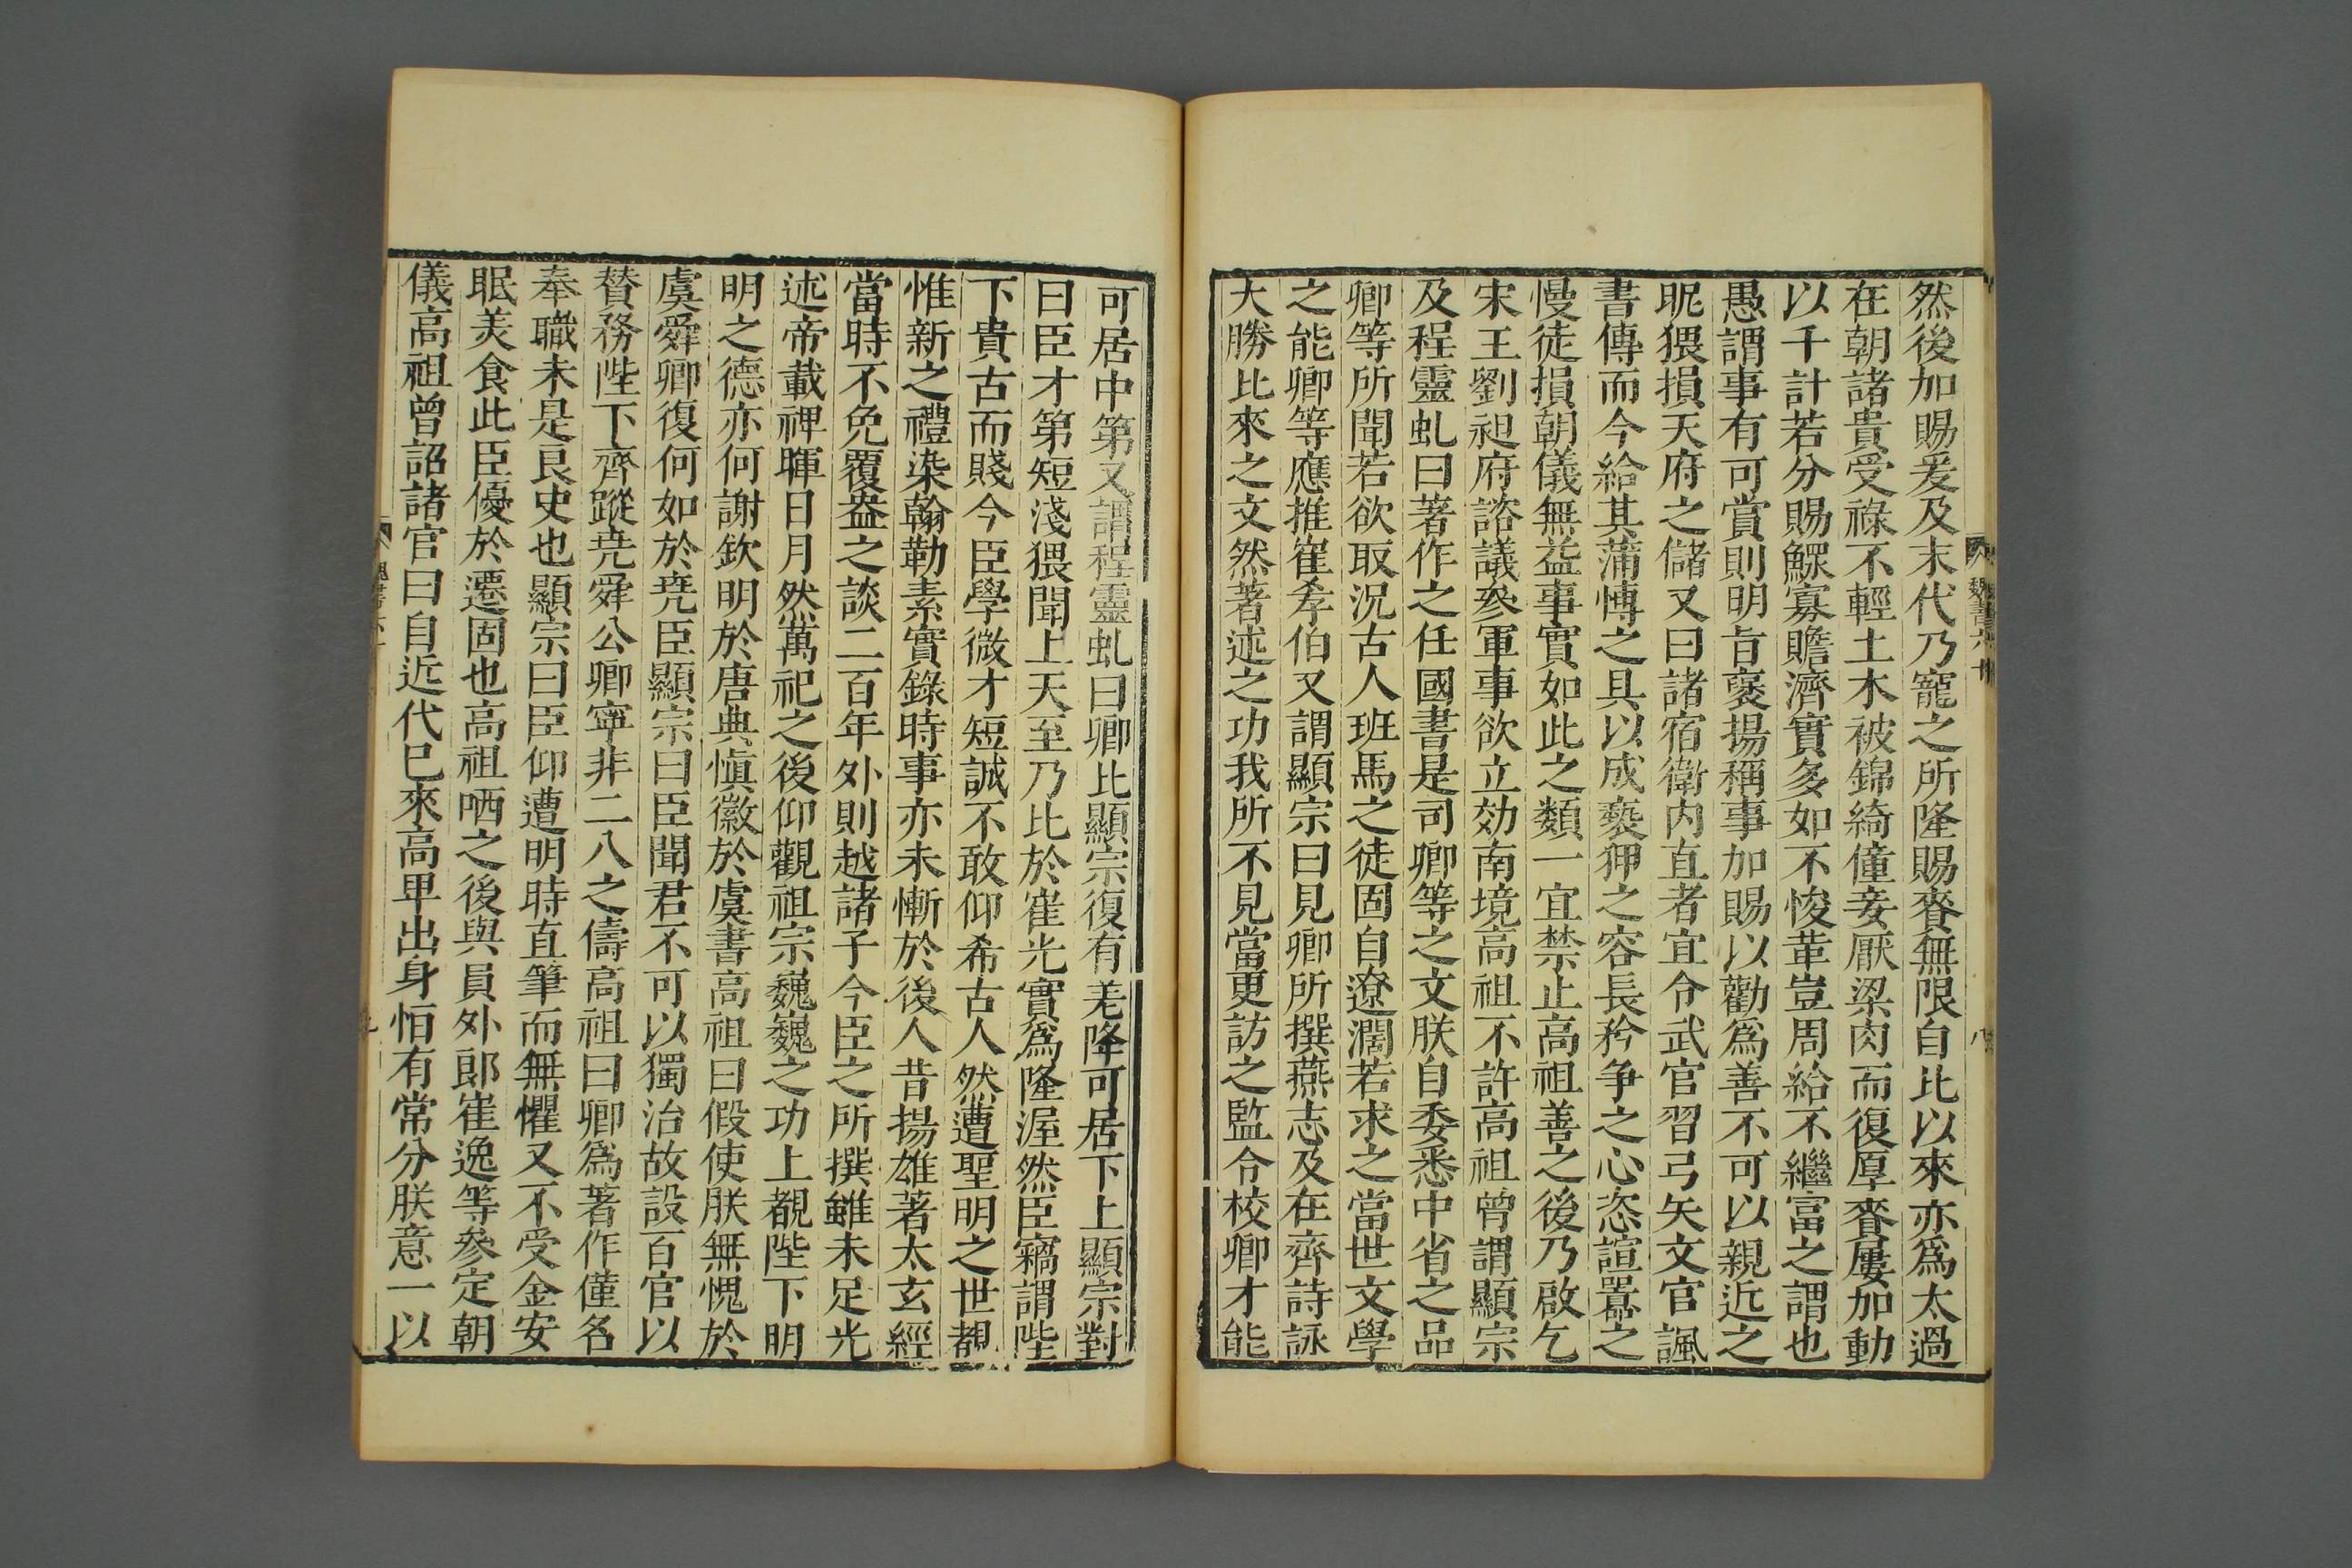 然後加賜爰及末代乃寵之所隆賜賚無限自比以來亦爲太過
在朝諸貴受祿不輕土木被錦綺僮妾厭粱肉而復厚賚屢加動
以千計若分賜鰥寡贍濟實多如不悛革豈周給不繼富之謂也
愚謂事有可賞則明旨褒揚稱事加賜以勸爲善不可以親近之
昵猥損天府之儲又曰諸宿衛内直者宜令武官習弓矢文官諷
書傳而今給其蒲博之具以成褻狎之容長矜争之心恣諠囂之
慢徒損朝儀無益事實如此之類一宜禁止高祖善之後乃啟乞
宋王劉昶府諮議參軍事欲立効南境高祖不許高祖曾謂顯宗
及程靈虬曰著作之任國書是司卿等之文朕自委悉中省之品
卿等所聞若欲取況古人班馬之徒固自遼濶若求之當世文學
之能卿等應推崔孝伯又謂顯宗曰見卿所撰燕志及在齊詩詠
大勝比來之文然著述之功我所不見當更訪之監令校卿才能
可居中第又謂程靈虬曰卿比顯宗復有差降可居下上顯宗對
曰臣才第短淺猥聞上天至乃比於崔光實爲隆渥然臣竊謂陛
下貴古而賤今臣學微才短誠不敢仰希古人然遭聖明之世覩
惟新之禮染翰勒素實錄時事亦未慚於後人昔揚雄著太玄經
當時不免覆盎之談二百年外則越諸子今臣之所撰雖未足光
述帝載裨暉日月然萬祀之後仰觀祖宗巍巍之功上覩陛下明
明之德亦何謝欽明於唐典慎徽於虞書高祖曰假使朕無愧於
虞舜卿復何如於堯臣顯宗曰臣聞君不可以獨治故設百官以
贊務陛下齊蹤堯舜公卿寧非二八之儔高祖曰卿爲著作僅名
奉職未是良史也顯宗曰臣仰遭明時直筆而無懼又不受金安
眠美食此臣優於遷固也高祖哂之後與員外郎崔逸等參定朝
儀高祖曾詔諸官曰自近代已來高卑出身恒有常分朕意一以
魏書六十
八